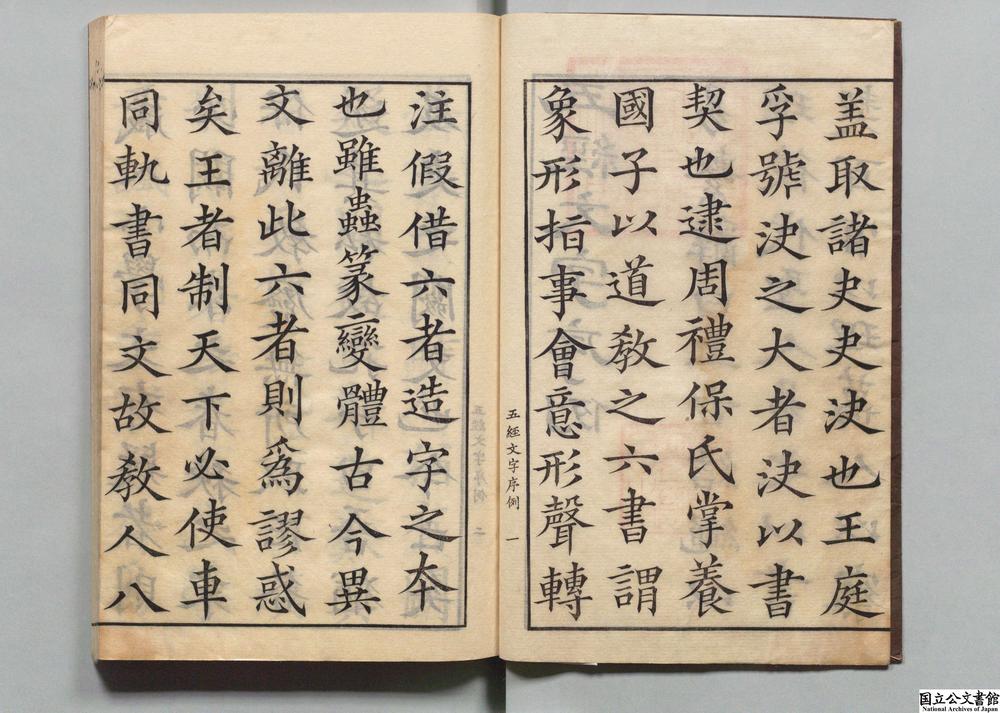 盖取諸夬夬決也王庭
孚號決之大者決以書
契也逮周禮保氏掌養
國子以道教之六書謂
象形指事會意形聲轉
五經文字序例 一
注假借六者造字之本
也雖蟲篆變體古今異
文離此六者則為謬惑
矣王者制天下必使車
同軌書同文故教人八
国立公文書館
National Archives of Japan